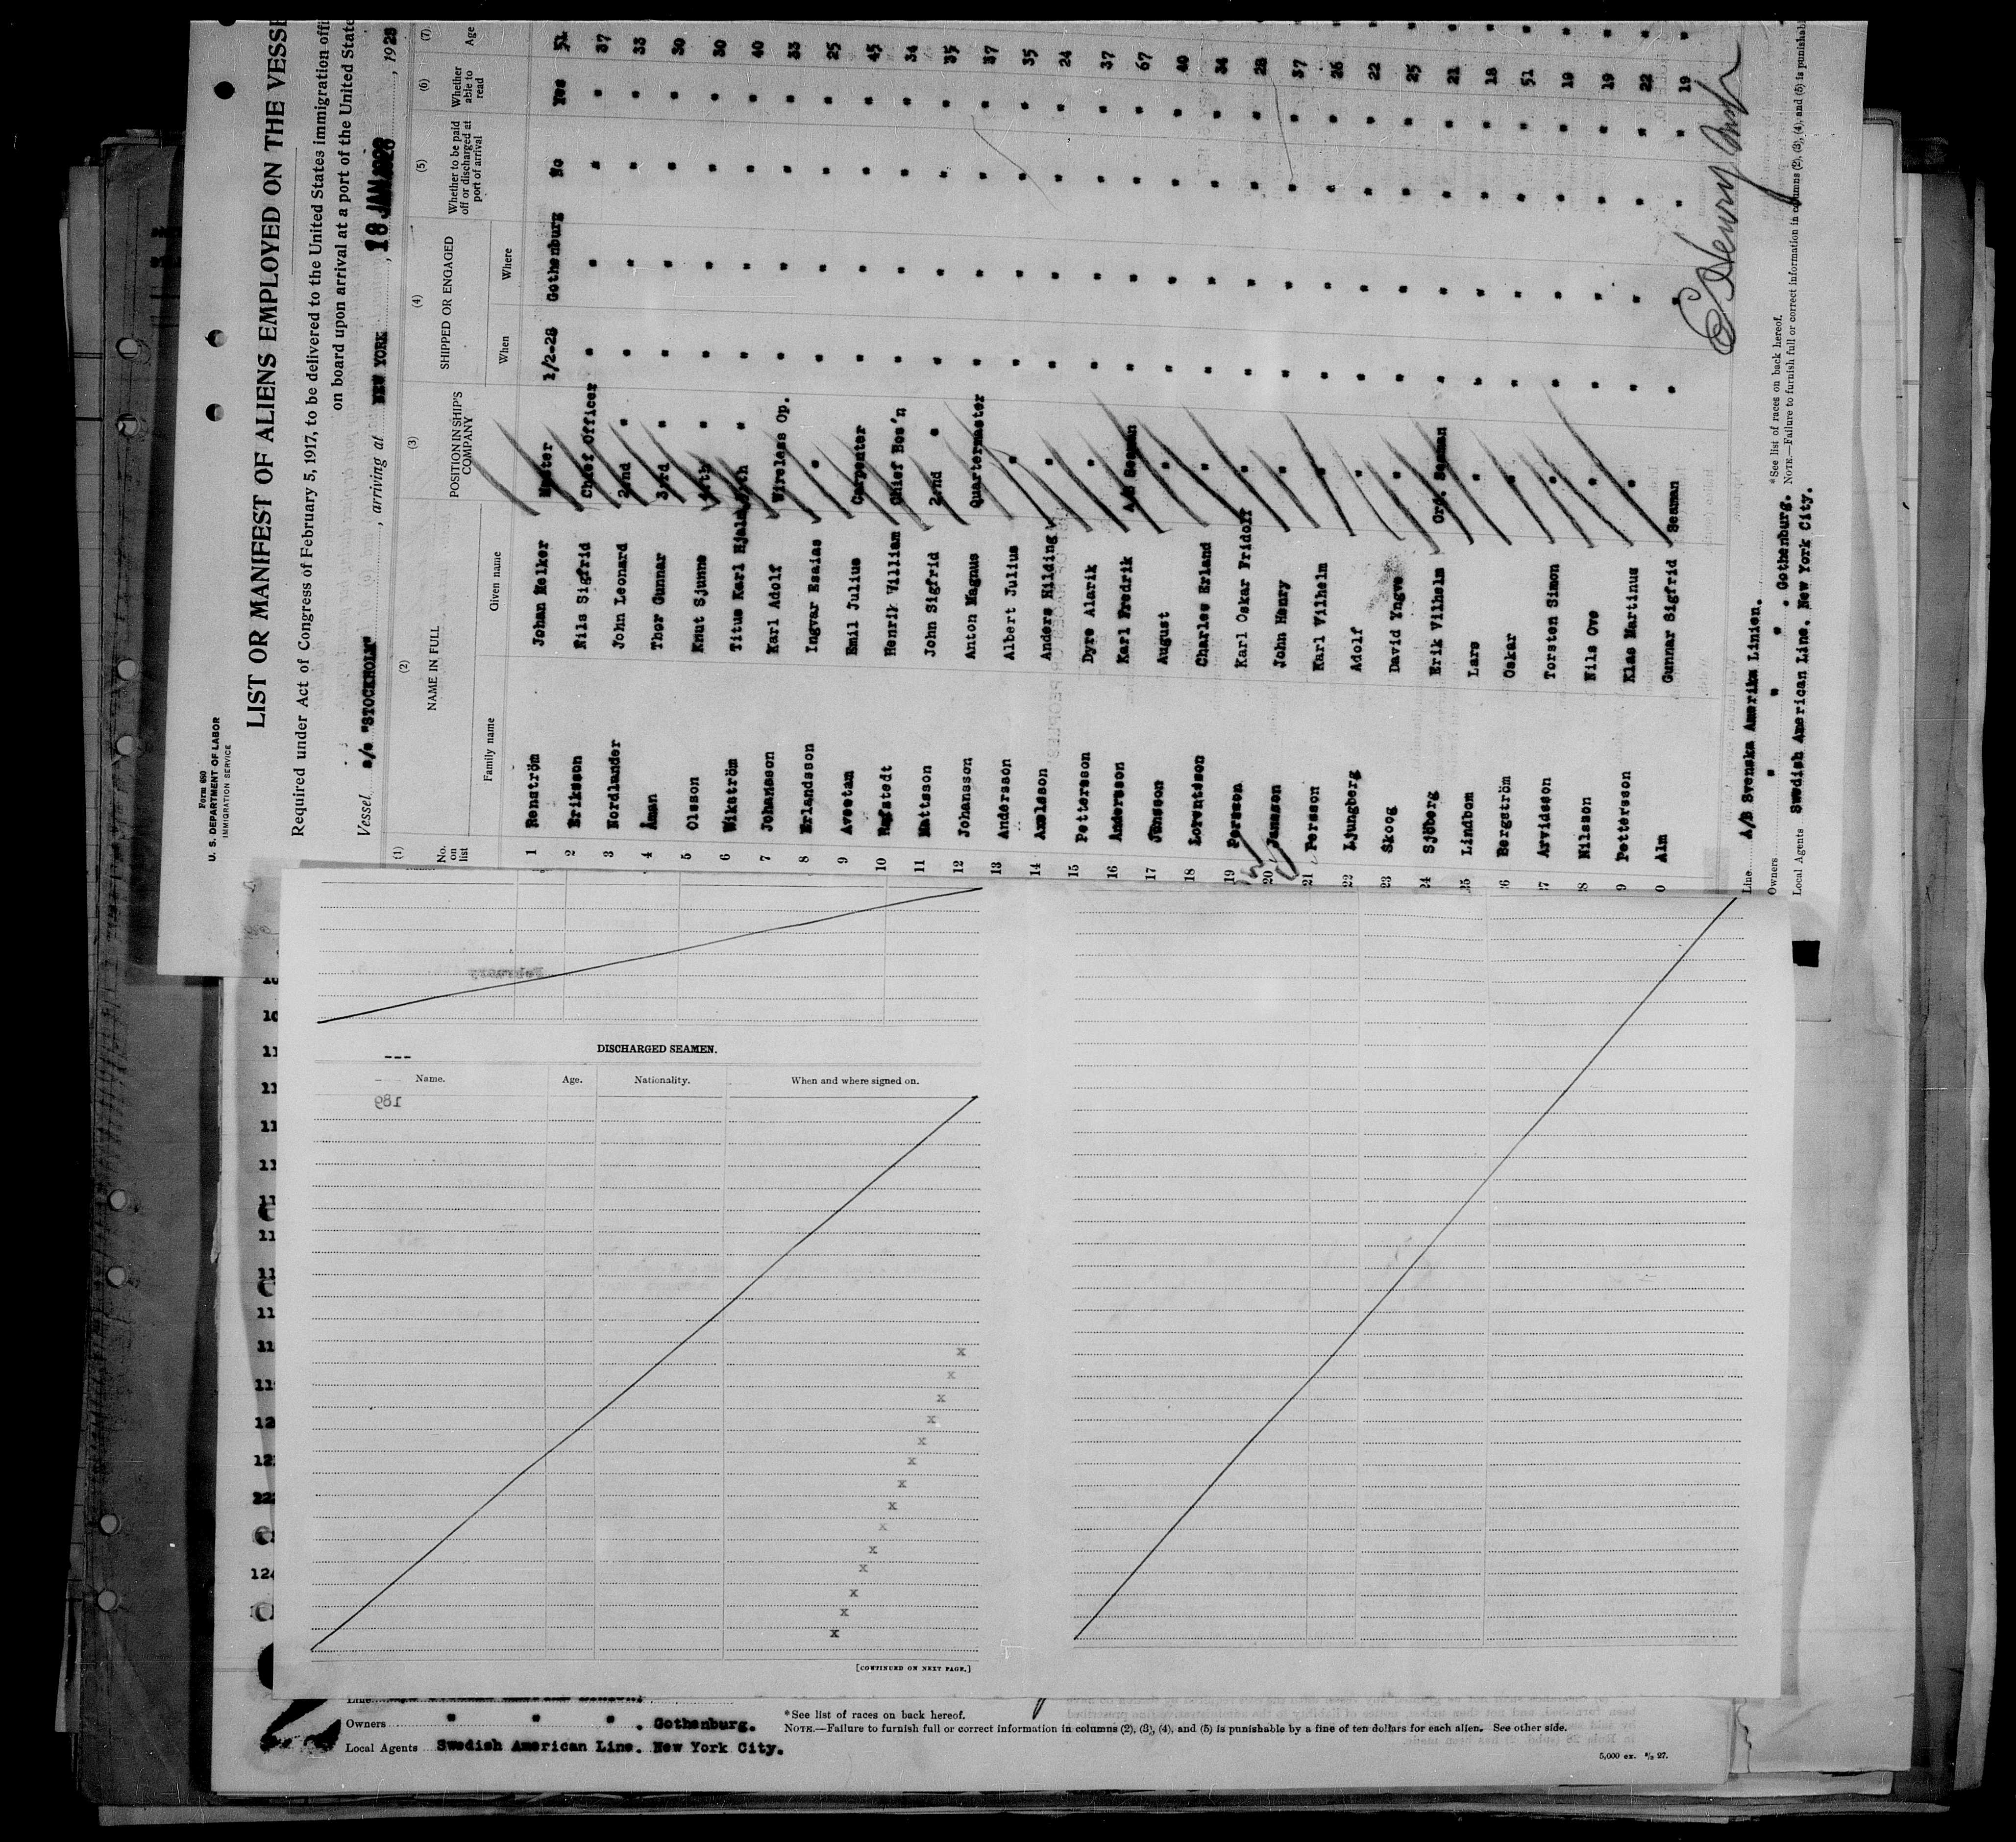 Form 680
U. S. DEPARTMENT OF LABOR
IMMIGRATION SERVICE
LIST OR MANIFEST OF ALIENS EMPLOYED ON THE VESSE
Required under Act of Congress of February 5, 1917, to be delivered to the United States immigration offi
on board upon arrival at a port of the United State
Vessel s/s "STOCKHOLM" , arriving at NEW YORK , 18 JAN 1928 , 1928
(1) (2) (3) (4) (5) (6) (7)
No. on list NAME IN FULL POSITION IN SHIP'S COMPANY SHIPPED OR ENGAGED Whether to be paid off or discharged at port of arrival Whether able to read Age
Family name Given name When Where
1 Renström Johan Melker Master 1/2-28 Gothenburg No Yes 51
2 Eriksson Nils Sigfrid Chief Officer " " " " 37
3 Nordlander John Leonard 2nd " " " " " 33
4 Åman Thor Gunnar 3rd " " " " " 30
5 Olsson Knut Sjunne 4th " " " " " 30
6 Wikström Titus Karl Hjalm 5th " " " " " 40
7 Johansson Karl Adolf Wireless Op. " " " " 33
8 Erlandsson Ingvar Esaias " " " " " 25
9 Avestam Emil Julius Carpenter " " " " 45
10 Hafstedt Henrik William Chief Bos'n " " " " 34
11 Mattsson John Sigfrid 2nd " " " " " 35
12 Johansson Anton Magnus Quartermaster " " " " 37
13 Andersson Albert Julius " " " " " 35
14 Axelsson Anders Hilding V " " " " " 24
15 Pettersson Dyre Alarik " " " " " 37
16 Andersson Karl Fredrik A/B Seaman " " " " 67
17 Jönsson August " " " " " 40
18 Lorentsson Charles Erland " " " " " 34
19 Persson Karl Oskar Fridolf " " " " " 28
20 Jansson John Henry " " " " " 37
21 Persson Karl Vilhelm " " " " " 26
22 Ljungberg Adolf " " " " " 22
23 Skoog David Yngve " " " " " 25
24 Sjöberg Erik Vilhelm Ord. Seaman " " " " 21
25 Lindbom Lars " " " " " 18
26 Bergström Oskar " " " " " 51
27 Arvidsson Torsten Simon " " " " " 18
8 Nilsson Nils Ove " " " " " 19
9 Pettersson Klas Martinus " " " " " 22
0 Alm Gunnar Sigfrid Seaman " " " " 19
Line A/B Svenska Amerika Linien.
Owners " " " . Gothenburg.
Local Agents Swedish American Line. New York City.
*See list of races on back hereof.
NOTE.—Failure to furnish full or correct information in columns (2), (3), (4), and (5) is punishabl
DISCHARGED SEAMEN.
---
Name. Age. Nationality. When and where signed on.
189
x
x
x
x
x
x
x
x
x
x
x
x
x
x
[CONTINUED ON NEXT PAGE.]
Owners " " " . Gothenburg.
Local Agents Swedish American Line. New York City.
*See list of races on back hereof.
NOTE.—Failure to furnish full or correct information in columns (2), (3), (4), and (5) is punishable by a fine of ten dollars for each alien. See other side.
5,000 ex. 3/2 27.